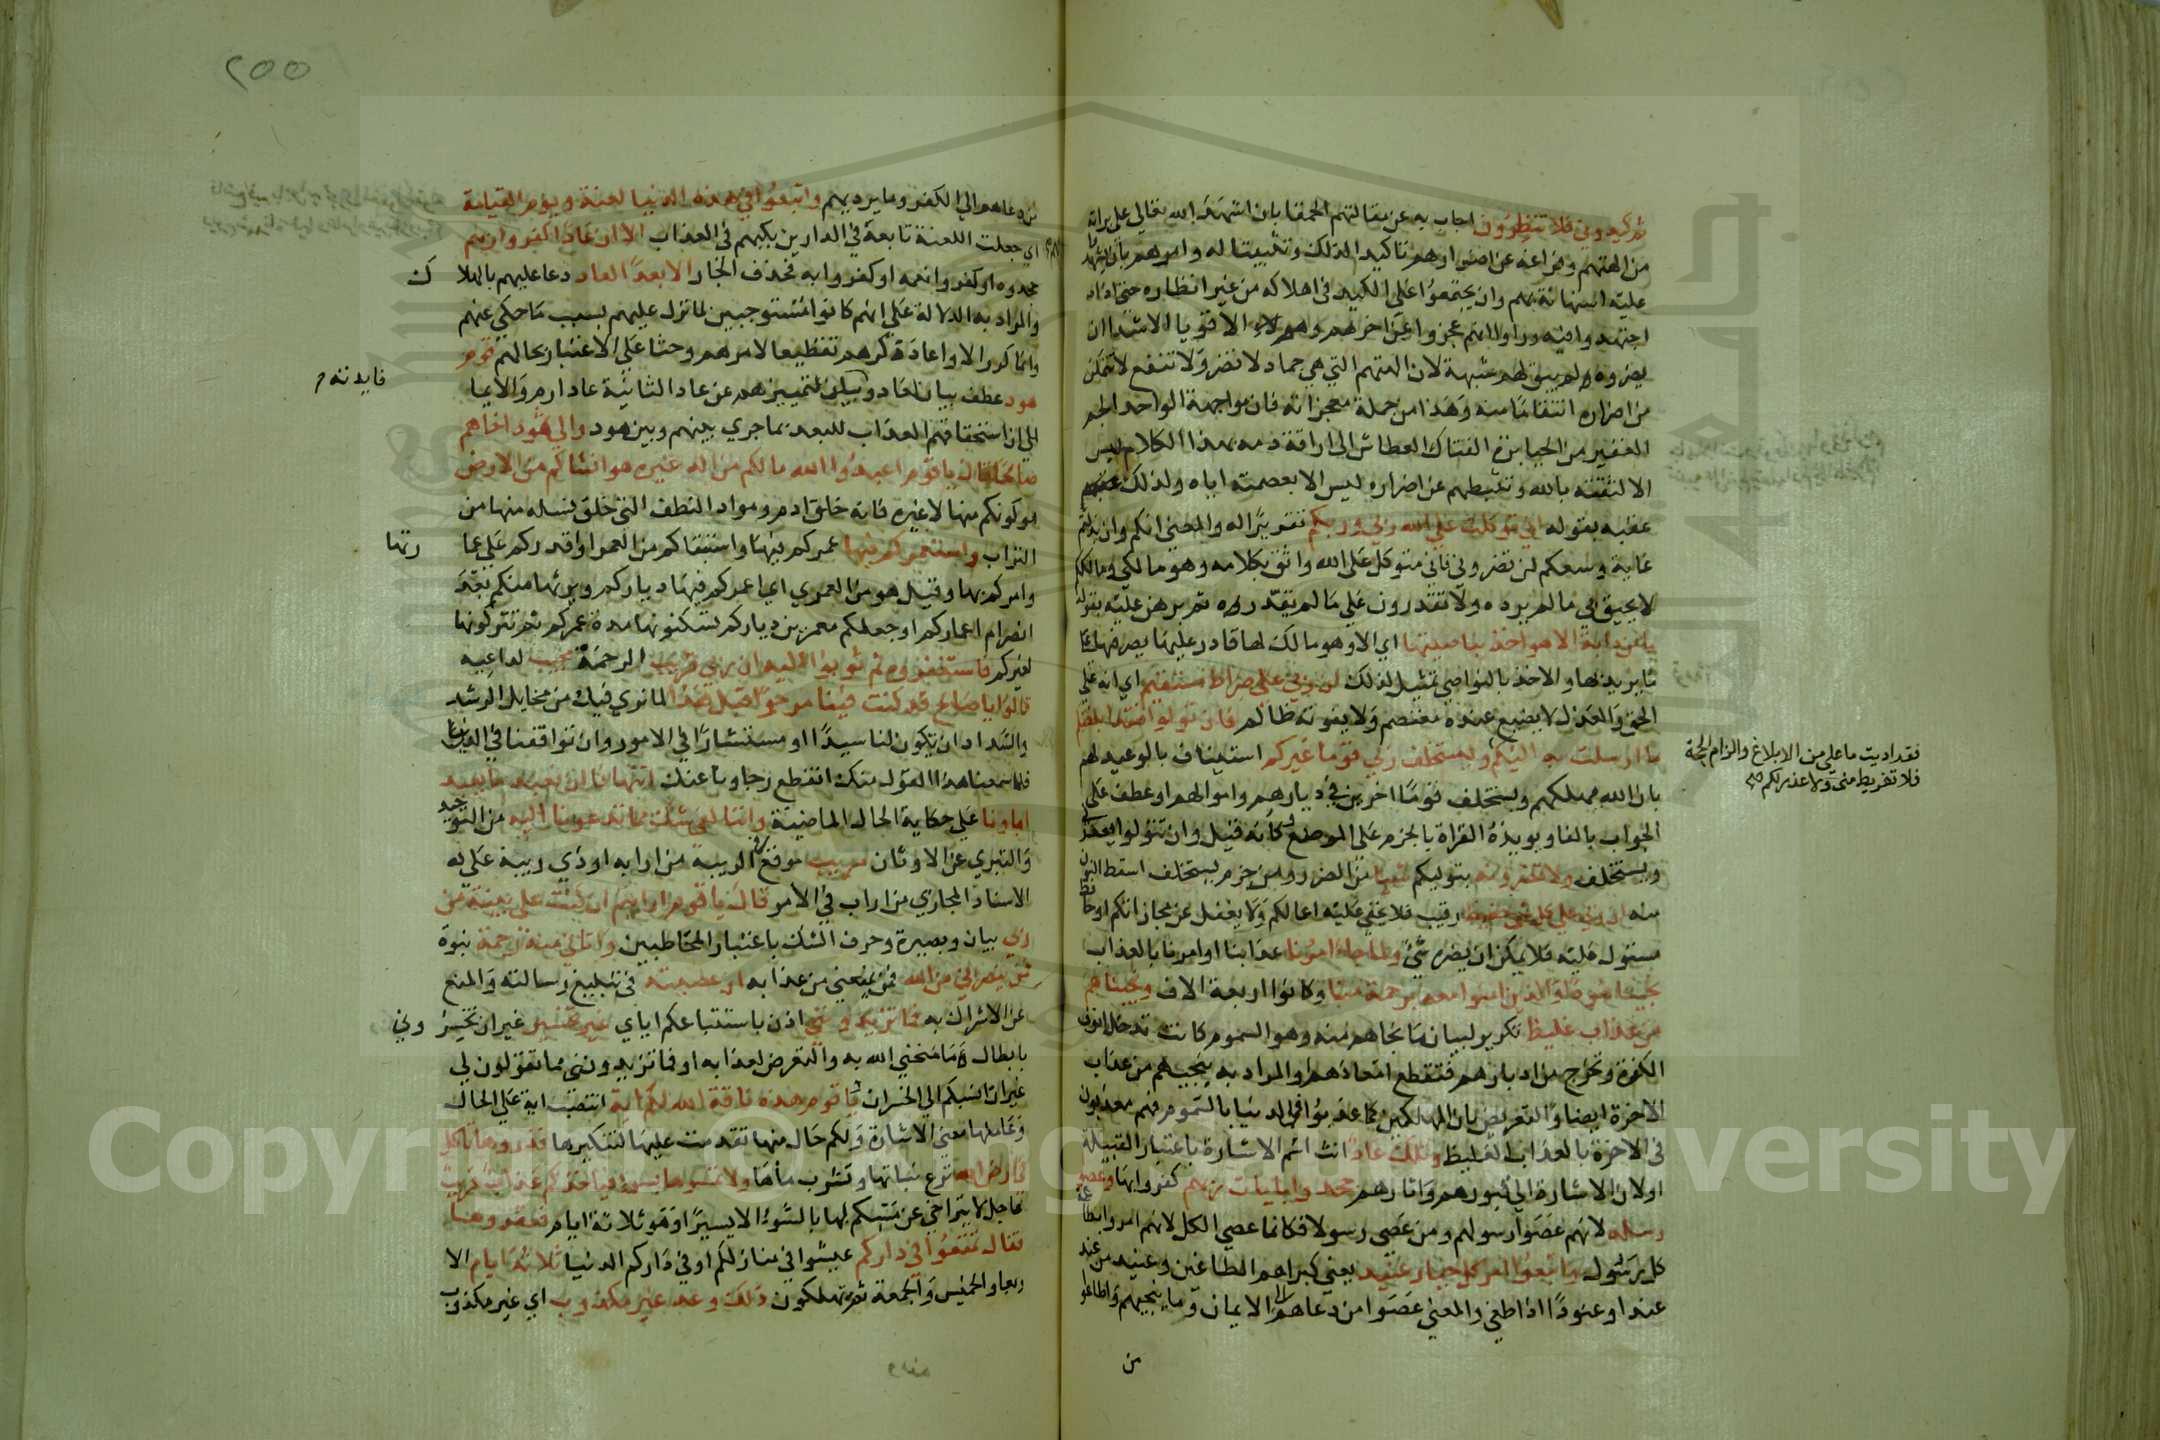 ثم كيدوني فلا تنظرون اجاب به عن مقالتهم الحمقا بان اشهد الله تعالى على براته
من الهتهم وفراغه عن اضرارهم تاكيدا لذلك وتثبيتا له وامرهم بان يشهدوا
عليه استهانة بهم وان يجتمعوا على الكيد في اهلاكه من غير انظار حتى اذا
اجتهدوا فيه وراوا انهم عجزوا عن اخرهم وهم الاقويا الاشدا ان
يضروه ولم يبق لهم شبهة لان الهتهم التي هي جماد لا تضر ولا تنفع لا تتمكن
من اضراره انتقاما منه وهذا من جملة معجزاته فان مواجهة الواحد الجم
الغفير من الجبابرة الفتاك العطاش الى اراقة دمه بهذا الكلام ليس
الا لثقته بالله وتثبيطهم عن اضراره ليس الا بعصمته اياه ولذلك
عقبه بقوله اني توكلت على الله ربي وربكم تقريرا له والمعنى انكم وان بذلتم
غاية وسعكم لن تضروني فاني متوكل على الله واثق بكلامه وهو مالكي ومالككم
لا يحيق بي ما لم يرده ولا تقدرون على ما لم يقدره ثم برهن عليه بقوله
ما من دابة الا هو اخذ بناصيتها اي الا وهو مالك لها قادر عليها يصرفها على
ما يريد بها والاخذ بالنواصي تمثيل لذلك ان ربي على صراط مستقيم اي انه على
الحق والعدل لا يضيع عنده معتصم ولا يفوته ظالم فان تولوا فقد ابلغتكم
ما ارسلت به اليكم ويستخلف ربي قوما غيركم استيناف بالوعيد لهم
بان الله يهلكهم ويستخلف قوما اخرين في ديارهم واموالهم او عطف على
الجواب بالفا ويويده القراة بالجزم على الموضع وكانه قيل وان تتولوا يعذركم
ويستخلف ولا تضرونه بتوليكم شيا من الضرر ومن جزم يستخلف اسقط النون
منه ان ربي على كل شي حفيظ رقيب فلا يخفى عليه اعمالكم ولا يغفل عن مجازاتكم او حافظ
مستول عليه فلا يمكن ان يضره شي ولما جاء امرنا عذابنا او امرنا بالعذاب
نجينا هودا والذين امنوا معه برحمة منا وكانوا اربعة الاف ونجيناهم
من عذاب غليظ تكرير لبيان ما نجاهم منه وهو السموم كانت تدخل انوف
الكفرة وتخرج من ادبارهم فتقطع امعاءهم والمراد به تنجيتهم من عذاب
الاخرة ايضا والتعريض بان المهلكين كما عذبوا في الدنيا بالسموم فهم معذبون
في الاخرة بالعذاب الغليظ وتلك عاد انث اسم الاشارة باعتبار القبيلة
او لان الاشارة الى قبورهم واثارهم جحدوا بايات ربهم كفروا بها وعصوا
رسله لانهم عصوا رسولهم ومن عصى رسولا فكانما عصى الكل لانهم امروا بطاعة
كل رسول واتبعوا امر كل جبار عنيد يعني كبراهم الطاغين وعنيد من عند
عندا وعنودا اذا طغى والمعنى عصوا من دعاهم الى الايمان وما ينجيهم واطاعوا
من
فقد اديت ما علي من الابلاغ والزام الحجة
فلا تفريط مني ولا عذر لكم صح
٢٥٥
من دعاهم الى الكفر وما يرديهم واتبعوا في هذه الدنيا لعنة ويوم القيامة
اي جعلت اللعنة تابعة في الدارين يكبهم في العذاب الا ان عادا كفروا ربهم
جحدوه او كفروا نعمه او كفروا به فحذف الجار الا بعدا لعاد دعا عليهم بالهلاك
والمراد به الدلالة على انهم كانوا مستوجبين لما نزل عليهم بسبب ما حكي عنهم
وانما كرر الا واعاد ذكرهم تفظيعا لامرهم وحثا على الاعتبار بحالهم قوم
هود عطف بيان لعاد و فايدته تمييزهم عن عاد الثانية عاد ارم والايما
الى ان استحقاقهم العذاب للبعد بما جرى بينهم وبين هود والى ثمود اخاهم
صالحا قال يا قوم اعبدوا الله ما لكم من اله غيره هو انشاكم من الارض
هو كونكم منها لا غيره فانه خلق ادم ومواد النطف التي خلق نسله منها من
التراب واستعمركم فيها عمركم فيها واستبقاكم من العمر او اقدركم على عمارتها
وامركم بها وقيل هو من العمرى اي اعمركم فيها دياركم ويرثها منكم بعد
انصرام اعماركم او جعلكم معمرين دياركم تسكنونها مدة عمركم ثم تتركونها
لغيركم فاستغفروه ثم توبوا اليه ان ربي قريب الرحمة مجيب لداعيه
قالوا يا صالح قد كنت فينا مرجوا قبل هذا لما نرى فيك من مخايل الرشد
والسداد ان تكون لنا سيدا او مستشارا في الامور وان توافقنا في الدين
فلما سمعنا هذا القول منك انقطع رجاونا عنك اتنهانا ان نعبد ما يعبد
اباونا على حكاية الحال الماضية واننا لفي شك مما تدعونا اليه من التوحيد
والتبري عن الاوثان مريب موقع في الريبة من ارابه او ذي ريبة على
الاسناد المجازي من اراب في الامر قال يا قوم ارايتم ان كنت على بينة من
ربي بيان وبصيرة وحرف الشك باعتبار المخاطبين واتاني منه رحمة نبوة
فمن ينصرني من الله فمن يمنعني من عذابه ان عصيته في تبليغ رسالته والمنع
عن الاشراك به فما تزيدونني اذن باستتباعكم اياي غير تخسير غير ان تخسروني
بابطال ما منحني الله به والتعرض لعذابه او فما تزيدونني مما تقولون لي
غير ان انسبكم الى الخسران ويا قوم هذه ناقة الله لكم اية انتصب اية على الحال
وعاملها معنى الاشارة ولكم حال منها تقدمت عليها لتنكيرها فذروها تاكل
في ارض الله ترع نباتها وتشرب ماها ولا تمسوها بسوء فياخذكم عذاب قريب
عاجل لا يتراخى عن مسكم لها بالسوء الا يسيرا وهو ثلاثة ايام فعقروها
فقال تمتعوا في داركم عيشوا في منازلكم او في داركم الدنيا ثلاثة ايام الا
ربعا والخميس والجمعة ثم تهلكون ذلك وعد غير مكذوب اي غير مكذوب
Copyright © King Saud University